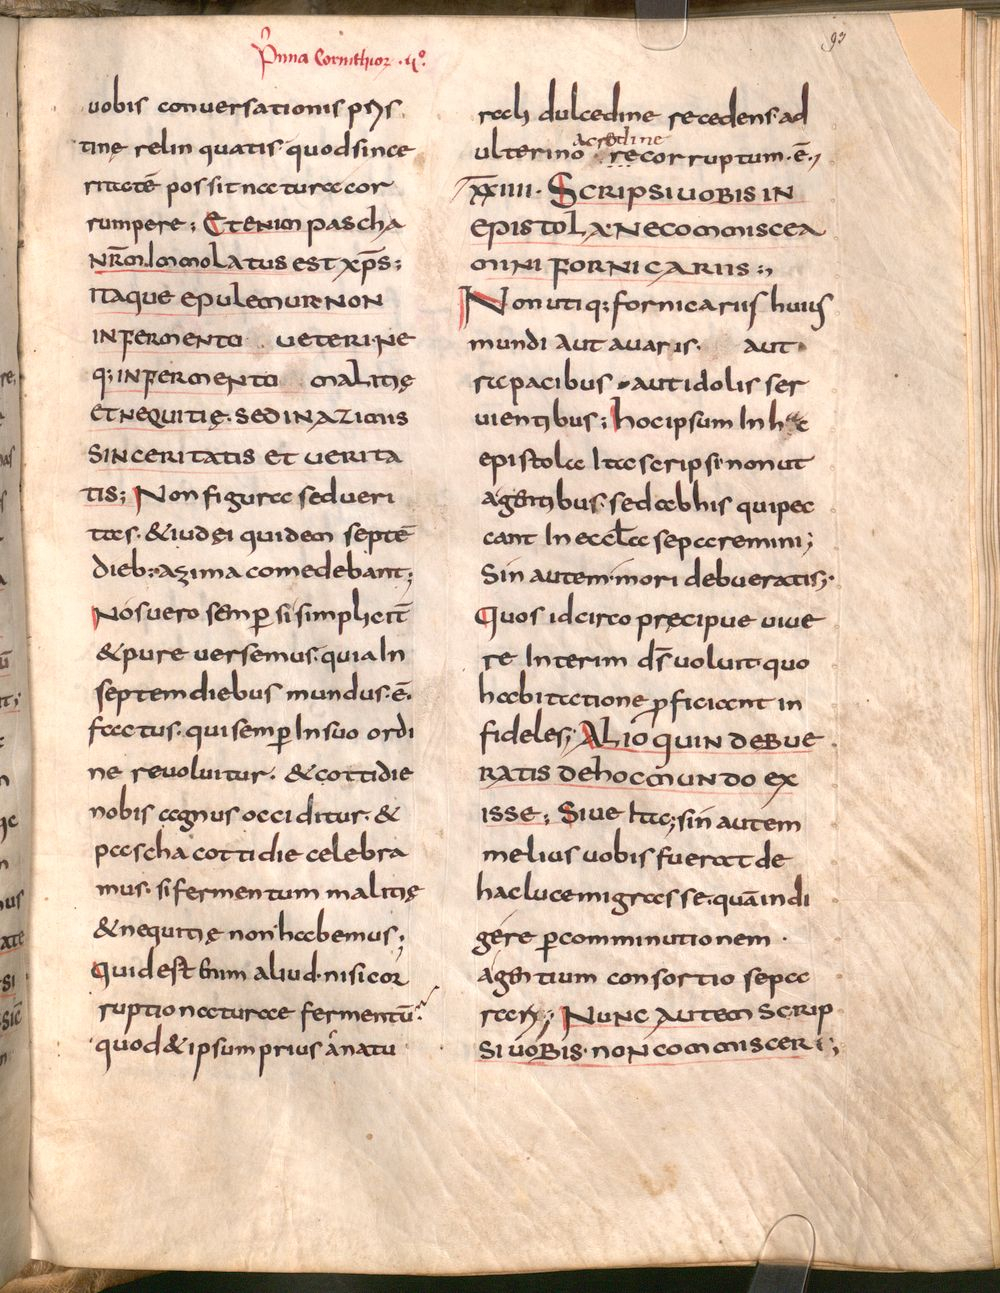 Prima Corinthior. ii°.
93
uobis conuersationis pris
tinę relinquatis quod since
ritatē possit naturā cor
rumpere; Etenim pascha
nr̄m Immolatus est xp̄s;
Itaque epulemur non
in fermento ueteri. ne
q; in fermento malitię
et nequitię. sed in azimis
sinceritatis et uerita
tis; Non figura sed ueri
tas. & iudęi quidem septē
dieb: azima comedebant;
Nos uero semꝑ si simpliciť
& pure uersemus. quia In
septem diebus mundus .ē.
factus. qui semꝑ In suo ordi
ne reuoluitur. & cottidie
nobis agnus occiditur. &
pascha cottidie celebra
mus. si fermentum malitię
& nequitię non habemus;
Quid est enim aliud. nisi cor
ruptio naturae fermentū.
quod & ipsum prius a natu
rali dulcedine recedens. ad
acredine
ulterino . re corruptum .ē.,
XXIIII. Scripsi uobis in
epistola. Ne commiscea
mini fornicariis;,
Non utiq; fornicariis huius
mundi aut auaris. aut
rapacibus. aut idolis ser
uientibus; hoc ipsum In hac
epistola Ita scripsi. non ut
agentibus. sed ab his qui pec
cant In eccła separemini;
Sin autem. mori debueratis;
Quos idcirco pręcipue uiue
re Interim ds̄ uoluit. quo
habitatione ꝑficiant in
fideles; Alioquin debue
ratis de hoc mundo ex
isse; Siue Ita; sin autem
melius uobis fuerat de
hac luce migrasse. quā indi
gere ꝑ comminutionem .
agentium consortio sepa
rari; Nunc autem scrip
si uobis. non commisceri;